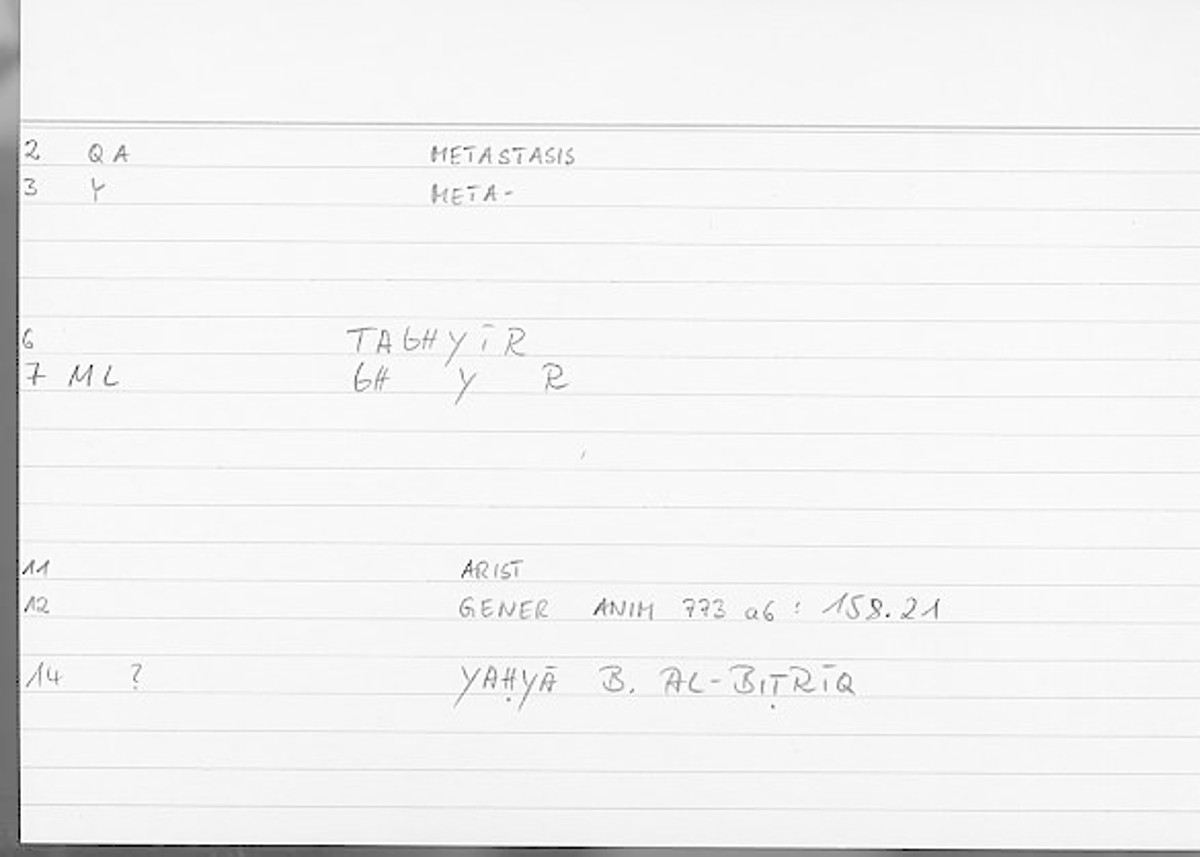 2 QA METASTASIS
3 Y META-
6 TAGHYĪR
7 ML GH Y R
11 ARIST
12 GENER ANIM 773 a6 : 158.21
14 ? YAḤYĀ B. AL-BIṬRĪQ